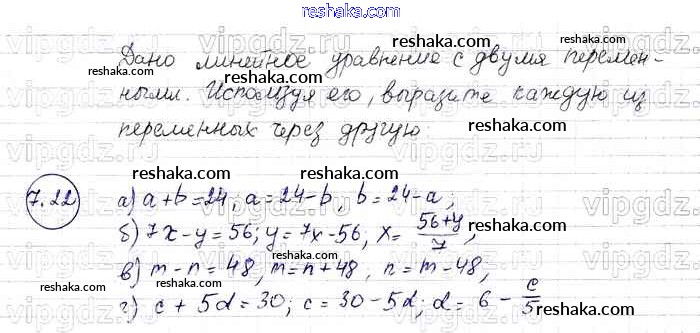 reshaka.com
Дано линейное уравнение с двумя перемен-
reshaka.com
ными. Используя его, выразите каждую из
reshaka.com reshaka.com
переменных через другую.
reshaka.com
reshaka.com reshaka.com
7.22 а) a+b=24; a=24-b, b=24-a;
reshaka.com
б) 7x-y=56; y=7x-56, x=\frac{56+y}{7},
reshaka.com reshaka.com
в) m-n=48, m=n+48, n=m-48,
reshaka.com
г) c+5d=30; c=30-5d; d=6-\frac{c}{5}
reshaka.com